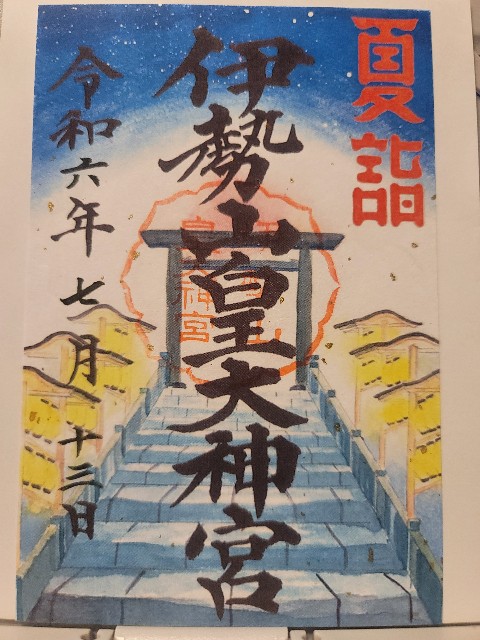 夏詣
伊勢山皇大神宮
令和六年七月十三日